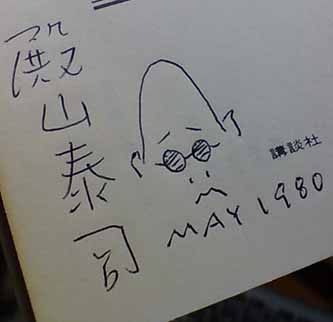 殿山泰司
講談社
MAY 1980